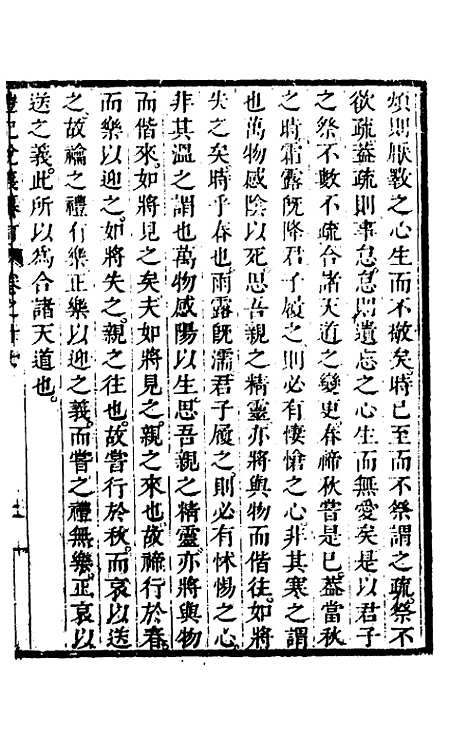 煩則厭斁之心生而不敬矣。時已至而不祭謂之疏。祭不
欲疏葢疏則事怠怠則遺忘之心生而無愛矣是以君子
之祭不數不疏合諸天道之變更春禘秋嘗是已。葢當秋
之時霜露既降君子履之則必有悽愴之心。非其寒之謂
也萬物感陰以死思吾親之精靈亦將與物而偕往。如將
失之矣。時乎春也雨露既濡君子履之。則必有怵惕之心。
非其溫之謂也萬物感陽以生思吾親之精靈亦將與物
而偕來。如將見之矣夫如將見之。親之來也。故禘行於春。
而樂以迎之。如將失之。親之往也。故嘗行於秋。而哀以送
之。故禴之禮有樂正樂以迎之義。而嘗之禮無樂。正哀以
送之義。此所以爲合諸天道也。
禮記 卷之